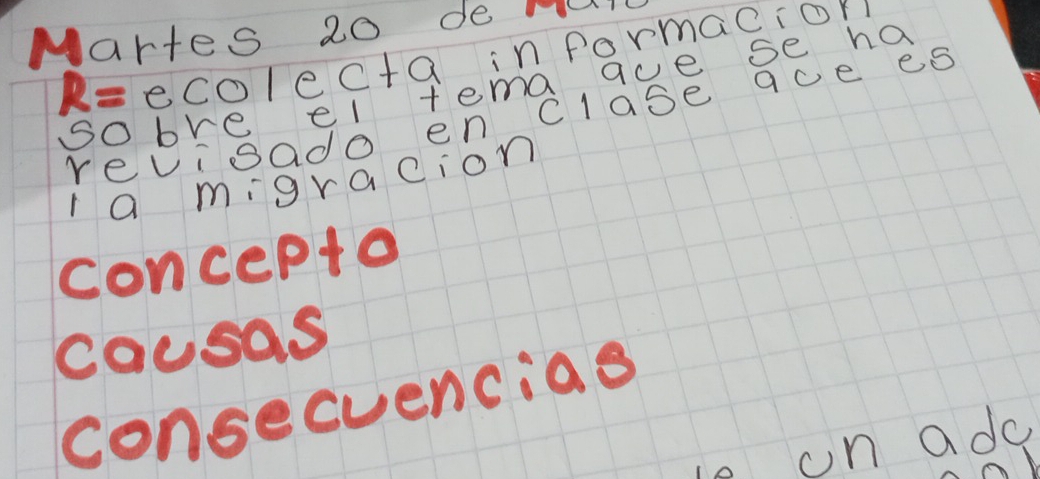 Martes 20 de
R=ecolecta informacion
sobre el tema que se ha
revisado en clase que es
la migracion
concepto
causas
consecuencias
un